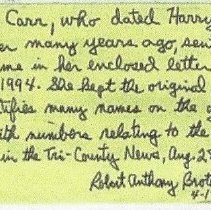 Carr, who dated Harry
er many years ago, sen
me in her enclosed letter
1994. She kept the original
tifies many names on the
ith numbers relating to the
in the Tri-County News, Aug. 2
Robert Anthony Brot
4-1